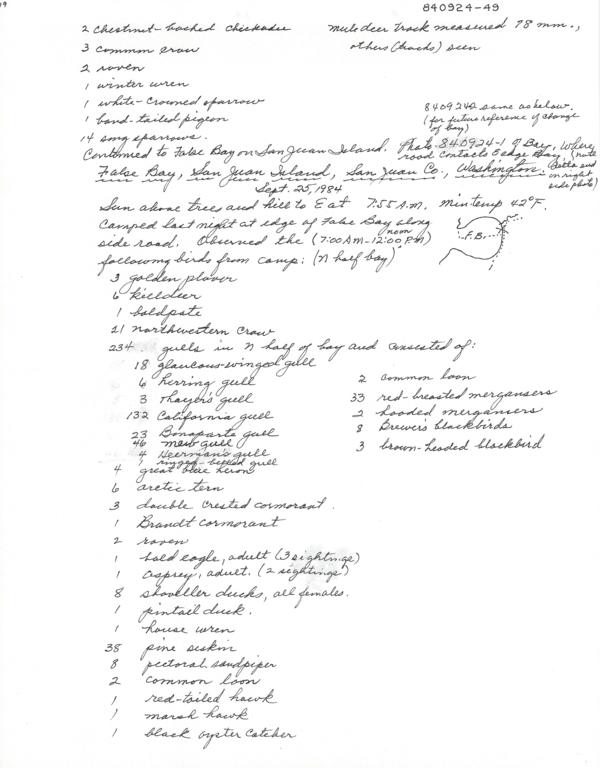 19
840924-49
2 Chestnut-backed Chickadee
3 common crow
2 raven
1 winter wren
1 white-crowned sparrow
1 band-tailed pigeon
14 song sparrows.
Mule deer track measured 78 mm.,
others (tracks) seen
840924-2 same as below.
(for future reference of change
of bay)
Continued to False Bay on San Juan Island. Photo 840924-1 of Bay, where
road contacts E edge Bay (note
on right
side photo)
False Bay, San Juan Island, San Juan Co., Washington.
Sept. 25, 1984
Sun above trees and hill to E at 7:55 A.M. Min temp 42°F.
Camped last night at edge of False Bay along
side road. Observed the (7:00 AM-12:00 noon PM)
following birds from camp: (N half bay)
F.B.
3 golden plover
6 killdeer
1 baldpate
21 Northwestern Crow
234 gulls in N half of bay and consisted of:
18 glaucous-winged gull
6 herring gull
3 thayer's gull
132 California gull
23 Bonaparte gull
46 mew gull
4 Heerman's gull
1 ringed-billed gull
4 great blue heron
6 arctic tern
3 double crested cormorant.
1 Brandt cormorant
2 raven
1 bald eagle, adult (3 sightings)
1 osprey, adult. (2 sightings)
8 shoveller ducks, all females.
1 pintail duck.
1 house wren
38 pine siskin
8 pectoral sandpiper
2 common loon
1 red-tailed hawk
1 marsh hawk
1 black oyster catcher
2 common loon
33 red-breasted mergansers
2 hooded mergansers
8 Brewer's blackbirds
3 brown-headed blackbird